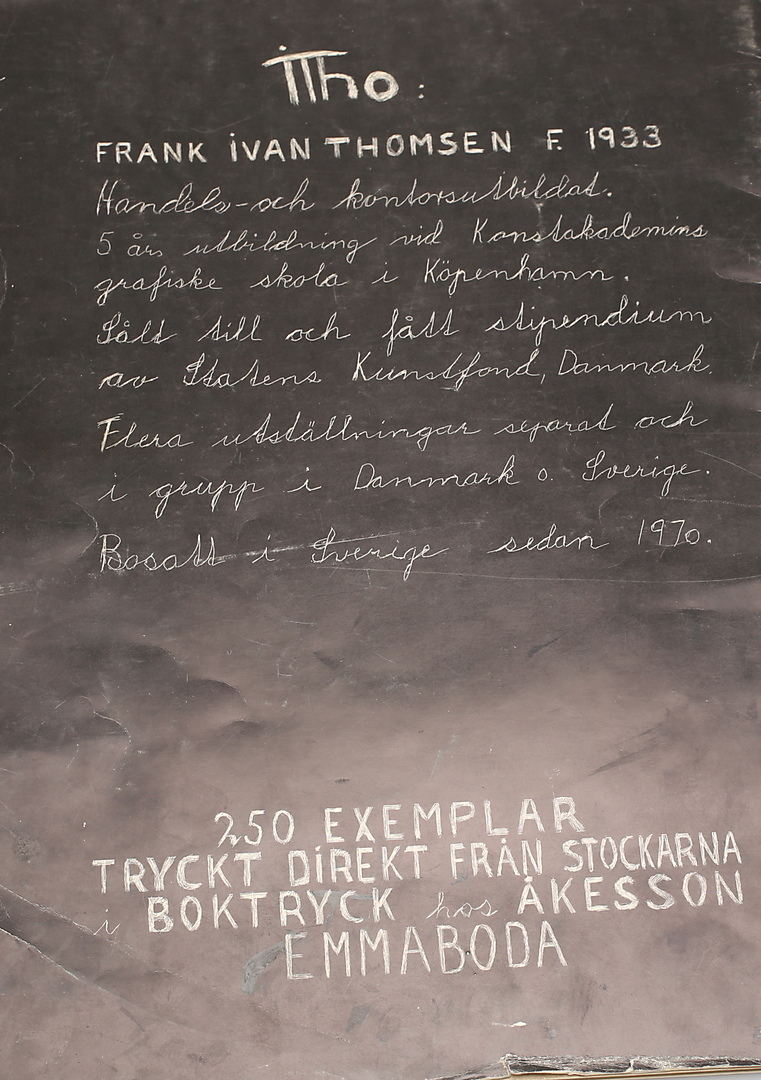 iTho:
FRANK iVAN THOMSEN F. 1933
Handels-och kontorsutbildat.
5 års utbildning vid Konstakademins
grafiske skola i Köpenhamn.
Sålt till och fått stipendium
av Statens Kunstfond, Danmark.
Flera utställningar separat och
i grupp i Danmark o. Sverige.
Bosatt i Sverige sedan 1970.
250 EXEMPLAR
TRYCKT DiREKT FRÅN STOCKARNA
i BOKTRYCK hos ÅKESSON
EMMABODA